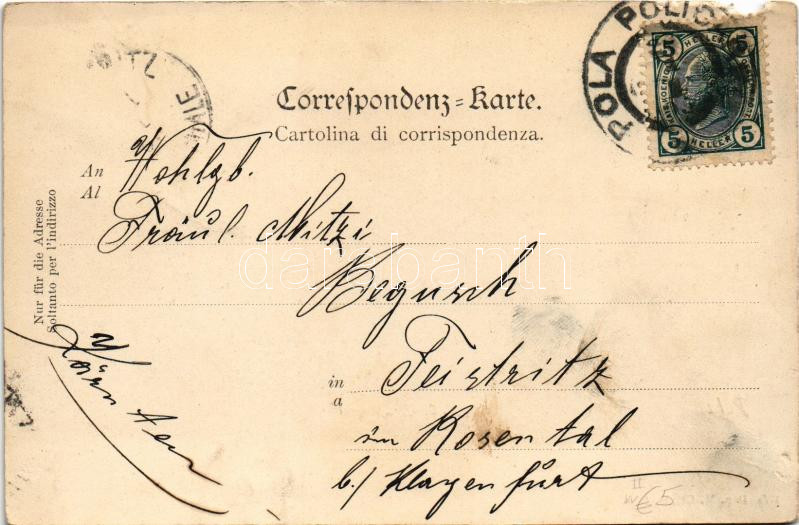 POLA POLICA
5 HELLER 5
5 HELLER 5
Correspondenz-Karte.
Cartolina di corrispondenza.
An
Al
Wohlgb.
Fräul. Mitzi
Begusch
in
a
Feistritz
im Rosental
b/ Klagenfurt
Kärnten
Nur für die Adresse
Soltanto per l'indirizzo
darabanth
€5